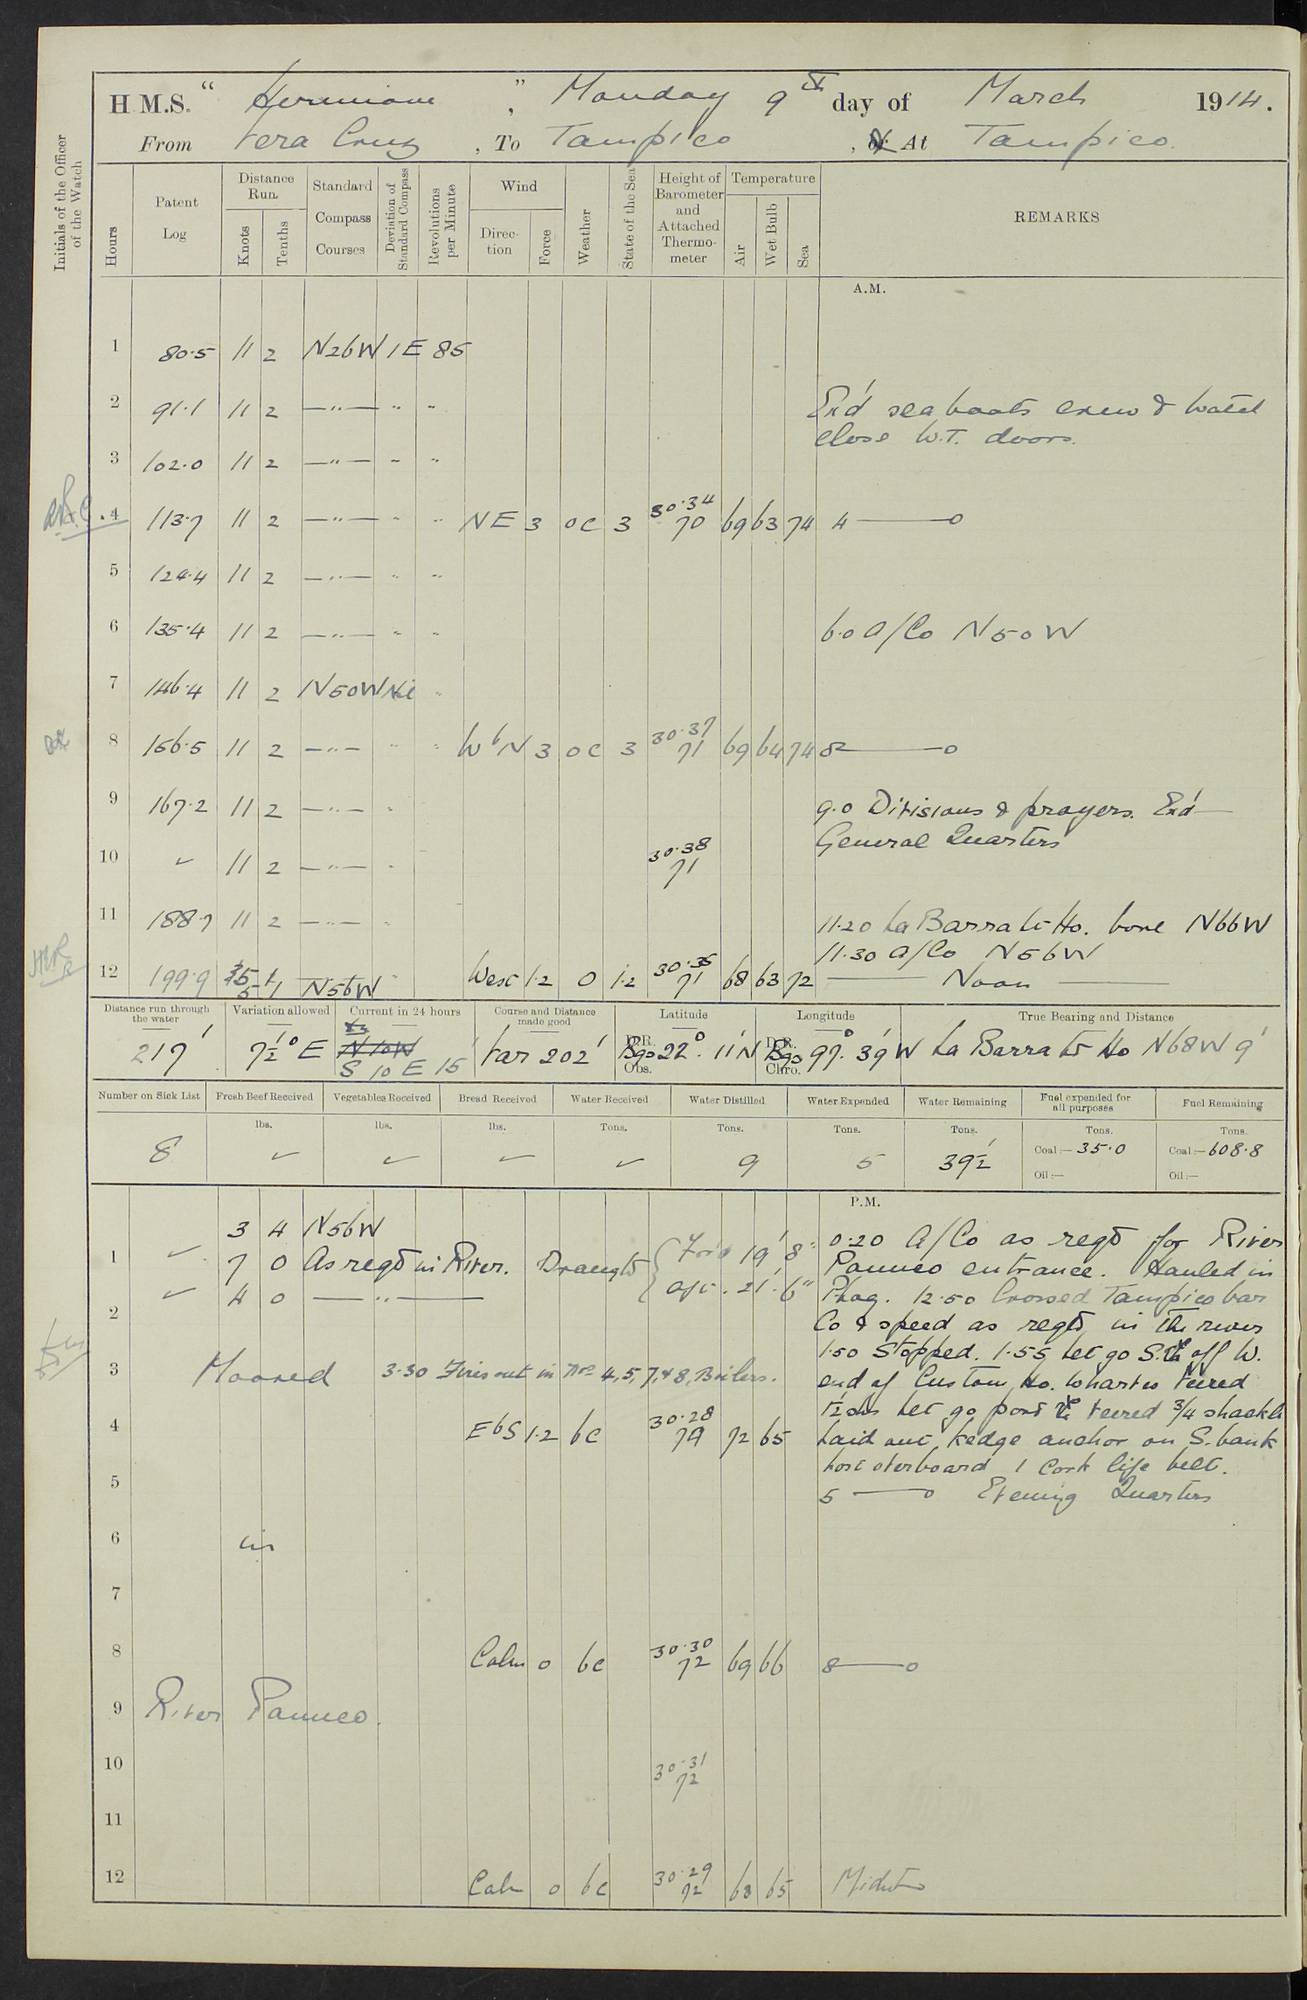 H.M.S. " Hermione ", Monday 9th day of March 1914.
From Vera Cruz, To Tampico, At Tampico
Initials of the Officer of the Watch
Hours
Patent Log
Distance Run
Knots
Tenths
Standard Compass Courses
Deviation of Standard Compass
Revolutions per Minute
Wind
Direction
Force
Weather
State of the Sea
Height of Barometer and Attached Thermometer
Temperature
Air
Wet Bulb
Sea
REMARKS
A.M.
1 80.5 11 2 N26W 1E 85
2 91.1 11 2 —"— " " Ex'd sea boats crew & watch
close W.T. doors.
3 102.0 11 2 —"— " "
4 113.7 11 2 —"— " " NE 3 oc 3 30.34 70 69 63 74 4——o
5 124.4 11 2 —"— " "
6 135.4 11 2 —"— " " 6.0 A/Co N50W
7 146.4 11 2 N50W "
8 156.5 11 2 —"— " " WbN 3 oc 3 30.37 71 69 64 74 8——o
9 167.2 11 2 —"— " 9.0 Divisions & prayers. Ex'd
General Quarters
10 ✓ 11 2 —"— " 30.38 71
11 188.7 11 2 —"— " 11.20 La Barra Lt Ho. bore N66W
11.30 A/Co N56W
12 199.9 5 1 N56W " West 1.2 o 1.2 30.35 71 68 63 72 —— Noon ——
Distance run through the water
Variation allowed
Current in 24 hours
Course and Distance made good
Latitude
Longitude
True Bearing and Distance
217' 7½° E S 10 E 15 Var 202' D.R. Obs. Bgs 22° 11'N D.R. Chro. Bgs 97° 39'W La Barra Lt Ho N68W 9'
Number on Sick List
Fresh Beef Received
Vegetables Received
Bread Received
Water Received
Water Distilled
Water Expended
Water Remaining
Fuel expended for all purposes
Fuel Remaining
lbs. lbs. lbs. Tons. Tons. Tons. Tons. Tons. Tons.
8 ✓ ✓ ✓ ✓ 9 5 39½ Coal:— 35.0 Coal:— 608.8
Oil:— Oil:—
P.M.
3 4 N56W 0.20 A/Co as reqd for River
1 ✓ 7 0 As reqd in River. Draught { Ford 19' 8" Panuco entrance. Hauled in
✓ 4 0 —"— Aft. 21' 6" P.log. 12.50 Crossed Tampico bar
2 Co & speed as reqd in the river
1.50 Stopped. 1.55 Let go S. off W.
3 Moored 3.30 Fires out in Nos 4, 5, 7, & 8, Boilers. end of Custom Ho. Wharves Veered
let go port Veered ¾ shackle
4 EbS 1.2 bc 30.28 79 72 65 Laid out kedge anchor on S. bank
Lost overboard 1 cork life belt.
5 5——o Evening Quarters
6 in
7
8 Calm o bc 30.30 72 69 66 8——o
9 River Panuco.
10 30.31 72
11
12 Calm o bc 30.29 72 68 65 Midnt